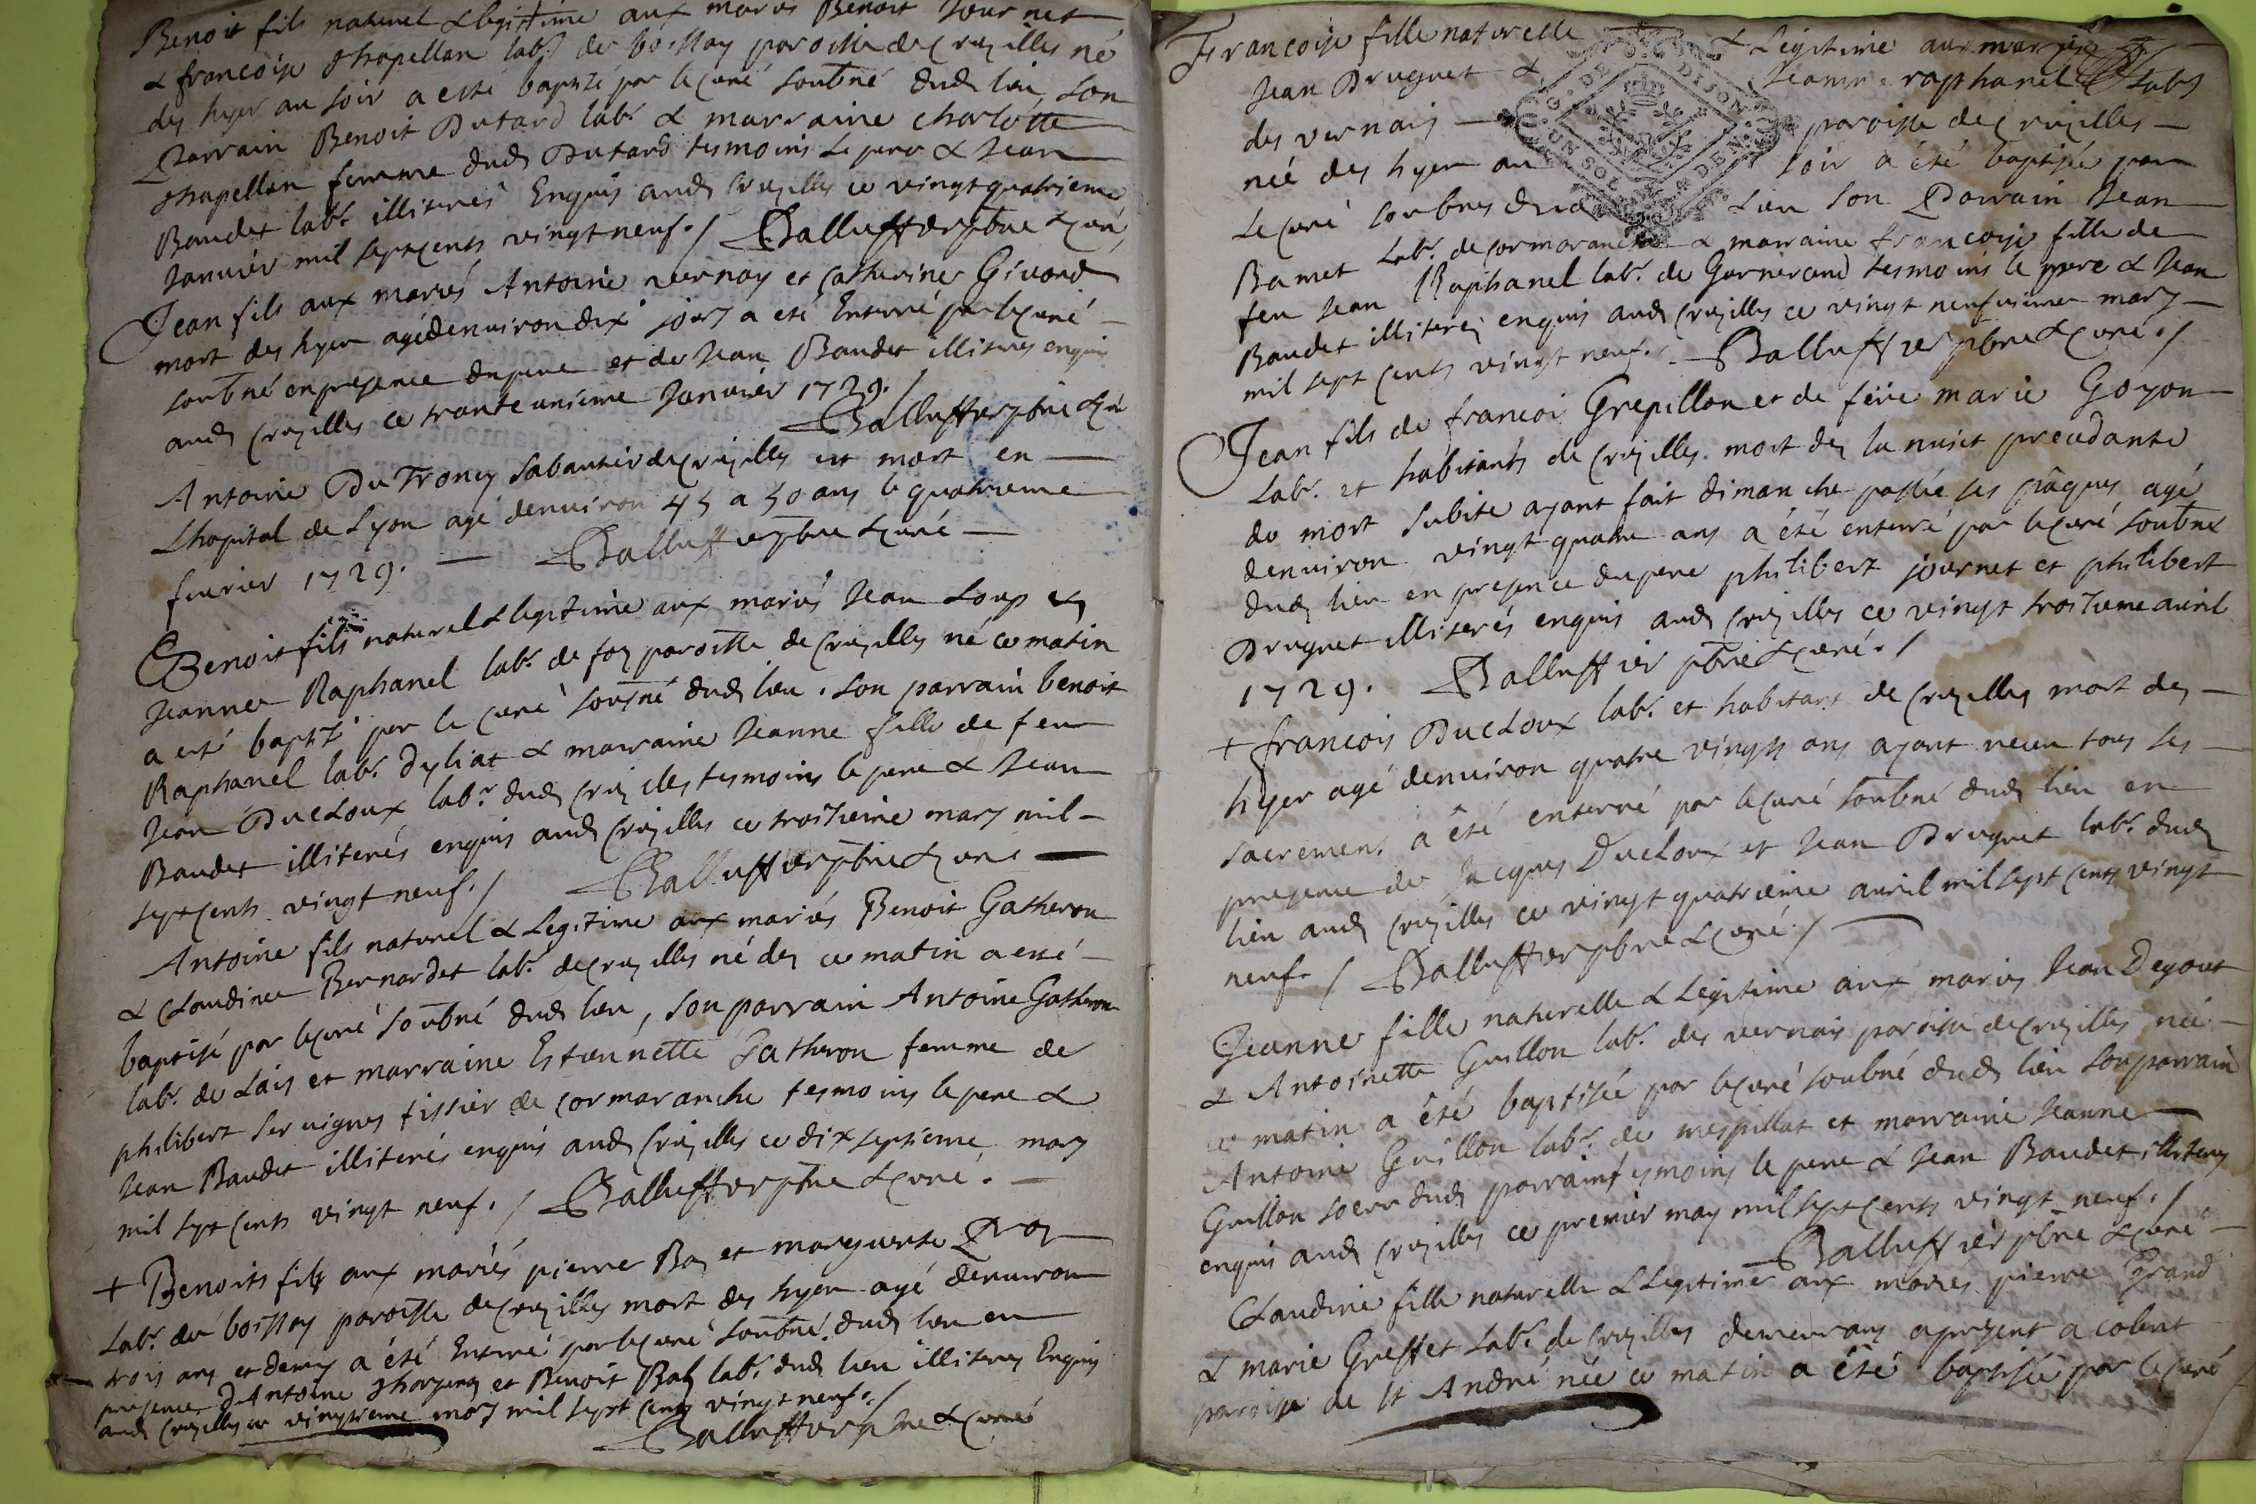 Benoit fils naturel & legitime aux mariés Benoit Journet
& francoise Chapellan lab.r de boissay paroisse de Cruzilles né
des hyer au soir a esté baptizé par le curé soubné dud lieu, son
Parrain Benoit Dutard lab.r & marraine charlotte
Chapellan femme dud Dutard tesmoins le pere & Jean
Baudet lab.r illiterés Enquis aud Cruzilles ce vingt quatrieme
Janvier mil sept cents vingt neuf./ Balluffier pbre & curé
Jean fils aux mariés Antoine vernay et Catherine Givord
mort des hyer agé denviron dix jours a eté Enterré par le curé
soubné en presence du pere et de Jean Baudet illiteres enquis
aud Cruzilles ce trante unieme Janvier 1729./
Balluffier pbre & cu
Antoine DuTroncy sabautier de Cruzilles est mort en
Lhopital de Lyon agé denviron 45 a 50 ans le quatrieme
fevrier 1729. Balluffier pbre & curé
Benoit fils naturel & legitime aux mariés Jean Loup &
Jeanne Raphanel lab.r de foz paroisse de Cruzilles né ce matin
a eté baptizé par le curé soubné dud lieu. son parrain benoit
Raphanel lab.r dyliat & marraine Jeanne fille de feu
Jean Ducloux lab.r dud Cruzilles tesmoins le pere & Jean
Baudet illiterés enquis aud Cruzilles ce troisieme mars mil
sept cents vingt neuf./ Balluffier pbre & curé
Antoine fils naturel & Legitime aux mariés Benoit Gatheron
& Claudine Bernardet lab.r de cruzilles né des ce matin a esté
baptisé par le curé soubné dud lieu, son parrain Antoine Gatheron
lab.r de Lais et marraine Estiennette Gatheron femme de
philibert Servignes tissier de cormaranche tesmoins le pere &
Jean Baudet illiterés enquis aud Cruzilles ce dix septieme mars
mil sept cents vingt neuf./ Balluffier pbre & curé.
+ Benoits fils aux mariés pierre Bay et marguerite Proy
Lab.r de boissay paroisse de Cruzilles mort des hyer agé denviron
trois ans et demy a été Enterré par le curé soubné dud lieu en
presence d'Antoine et Benoit Bay lab.r dud lieu illiteres Enquis
aud Cruzilles ce vingtieme mars mil sept cents vingt neuf./
Balluffier pbre & curé
Francoise fille naturelle & Legitime aux mariés
Jean Druguet & Jeanne raphanel labs
des vernais paroisse de Cruzilles
née des hyer au soir a été baptisée par
Le curé soubné dud Lieu son Parrain Jean
Bamet Lab.r de cormoranche & marraine francoise fille de
feu Jean Raphanel lab.r de Garnerand tesmoins le pere & Jean
Baudet illiteres enquis aud Cruzilles ce vingt neufvieme mars
mil sept cents vingt neuf. Balluffier pbre & curé./
Jean fils de francois Grepillon et de feüe marie Goyon
Lab.r et habitants de Cruzilles. mort des la nuict precedante
de mort subite ayant fait dimanche passée ses pâques agé
denviron vingt quatre ans a été enterré par le curé soubné
dud lieu en presence du pere philibert journet et philibert
Druguet illiterés enquis aud Cruzilles ce vingt troisieme avril
1729. Balluffier pbre & curé./
+ francois Ducloux lab.r et habitant de Cruzilles mort des
hyer agé denviron quatre vingts ans ayant receu tous ses
sacrement a êté enterré par le curé soubné dud lieu en
presence de Jacques Ducloux et Jean Druguet lab.r dud
lieu aud Cruzilles ce vingt quatrieme avril mil sept cents vingt
neuf./ Balluffier pbre & curé./
Jeanne fille naturelle & Legitime aux mariés Jean Degout
& Antoinette Guillon lab.r des vernais paroisse de cruzilles née
ce matin a êté baptisée par le curé soubné dud lieu son parrain
Antoine Guillon lab.r de mespillat et marraine Jeanne
Guillon soeur dud parrain tesmoins le pere & Jean Baudet illiteres
enquis aud Cruzilles ce premier may mil sept cents vingt neuf./
Balluffier pbre & curé
Claudine fille naturelle & Legitime aux mariés pierre Grand
& marie Greffet Lab.r de Cruzilles demeurans apresent a colent
paroisse de St André née ce matin a êté baptisée par le curé
G. DE DIJON
UN SOL 4 DEN.